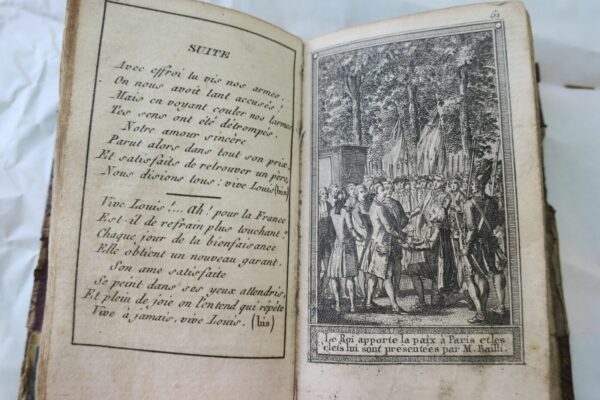 SUITE
Avec effroi tu vis nos armes,
On nous avoit tant accusés!
Mais en voyant couler nos larmes
Tes sens ont été détrompés.
Notre amour sincère
Parut alors dans tout son prix,
Et satisfaits de retrouver un père,
Nous disions tous: vive Louis (bis)
Vive Louis!... Ah! pour la France
Est-il de refrain plus touchant?
Chaque jour de la bienfaisance
Elle obtient un nouveau garant.
Son ame satisfaite
Se peint dans ses yeux attendris,
Et plein de joie on l'entend qui répète
Vive à jamais, vive Louis. (bis)
Le Roi apporte la paix à Paris et les
clefs lui sont presentées par M. Bailli.